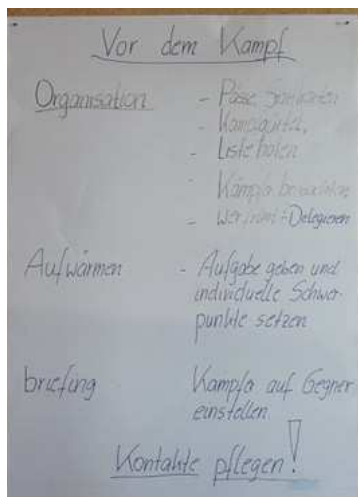 Vor dem Kampf
Organisation - Pässe, Startkarten
- Kampfgürtel,
- Liste holen
- Kämpfer
- wer, wann - Delegieren
Aufwärmen - Aufgabe geben und
individuelle Schwer-
punkte setzen
briefing Kämpfer auf Gegner
einstellen
Kontakte pflegen!